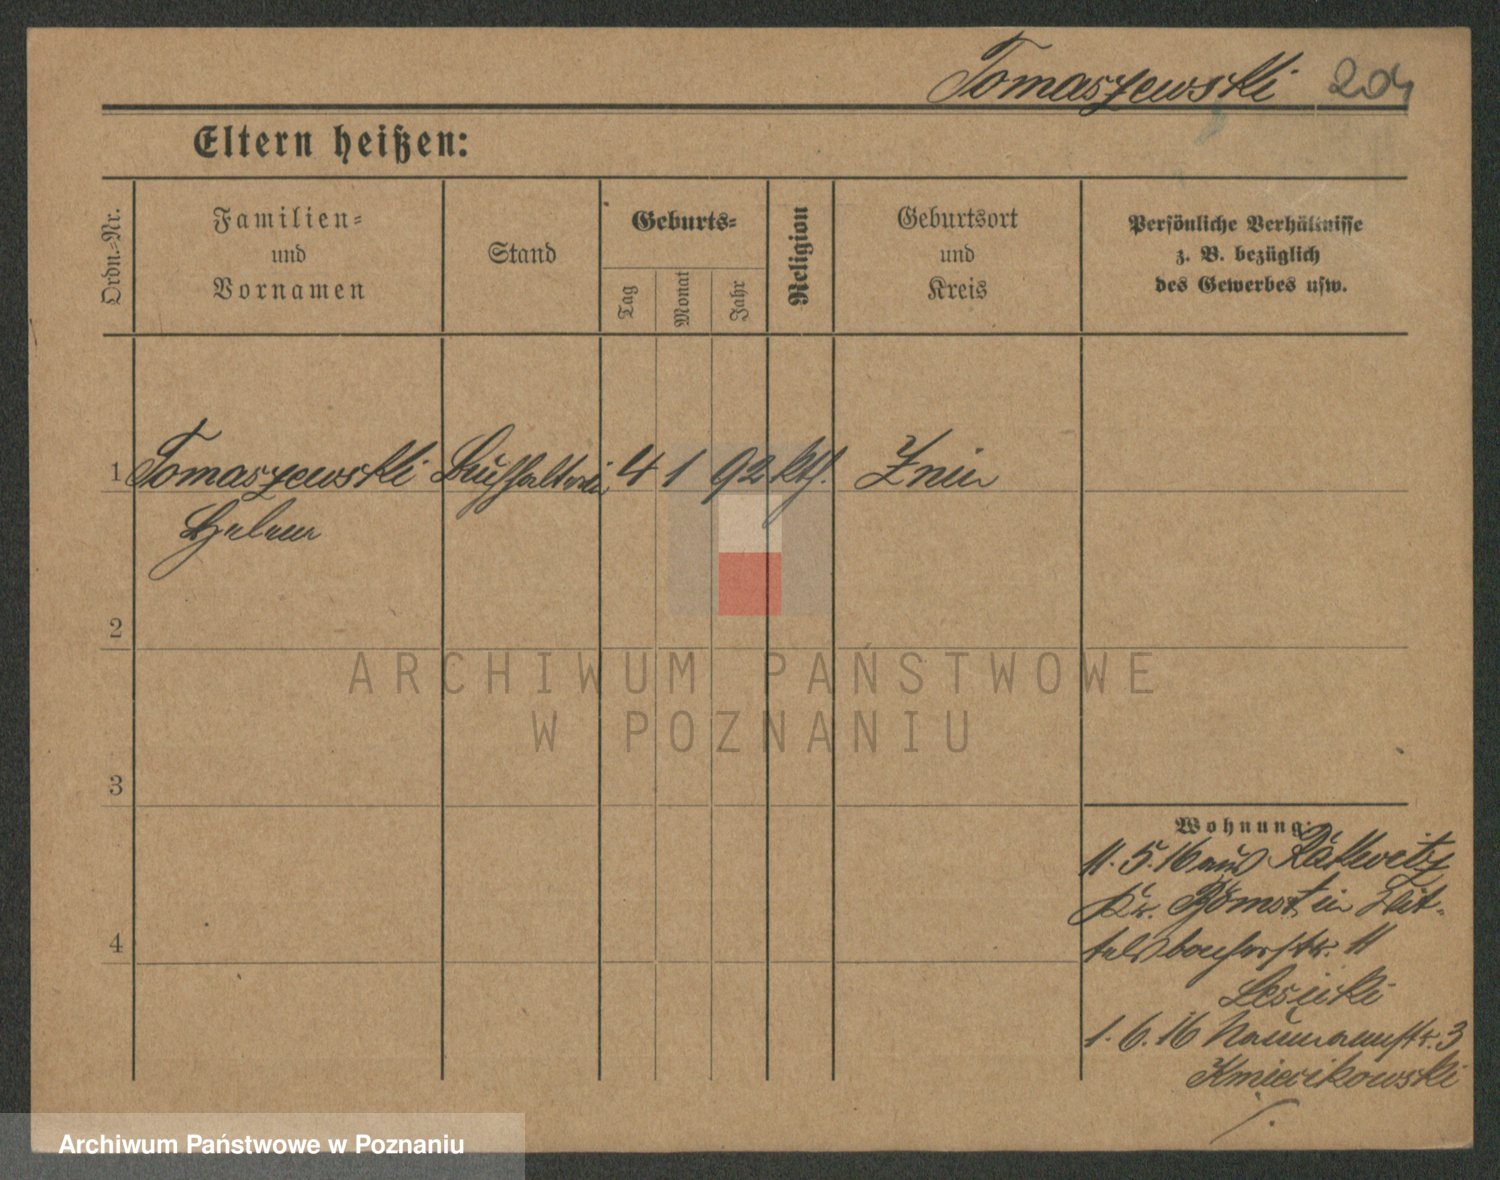 Tomaszewski 204
Eltern heißen:
Ordn.=Nr.
Familien=
und
Vornamen
Stand
Geburts=
Tag
Monat
Jahr
Religion
Geburtsort
und
Kreis
Persönliche Verhältnisse
z. B. bezüglich
des Gewerbes usw.
1 Tomaszewski Buchhalterin 4 1 92 kth. Znin
Helene
2
3
4
Wohnung:
11.5.16 aus
Kr. Bomst in Wit-
telsbacherstr. 11
Lesicki
1.6.16 Naumannstr. 3
Kmiecikowski
ARCHIWUM PAŃSTWOWE
W POZNANIU
Archiwum Państwowe w Poznaniu